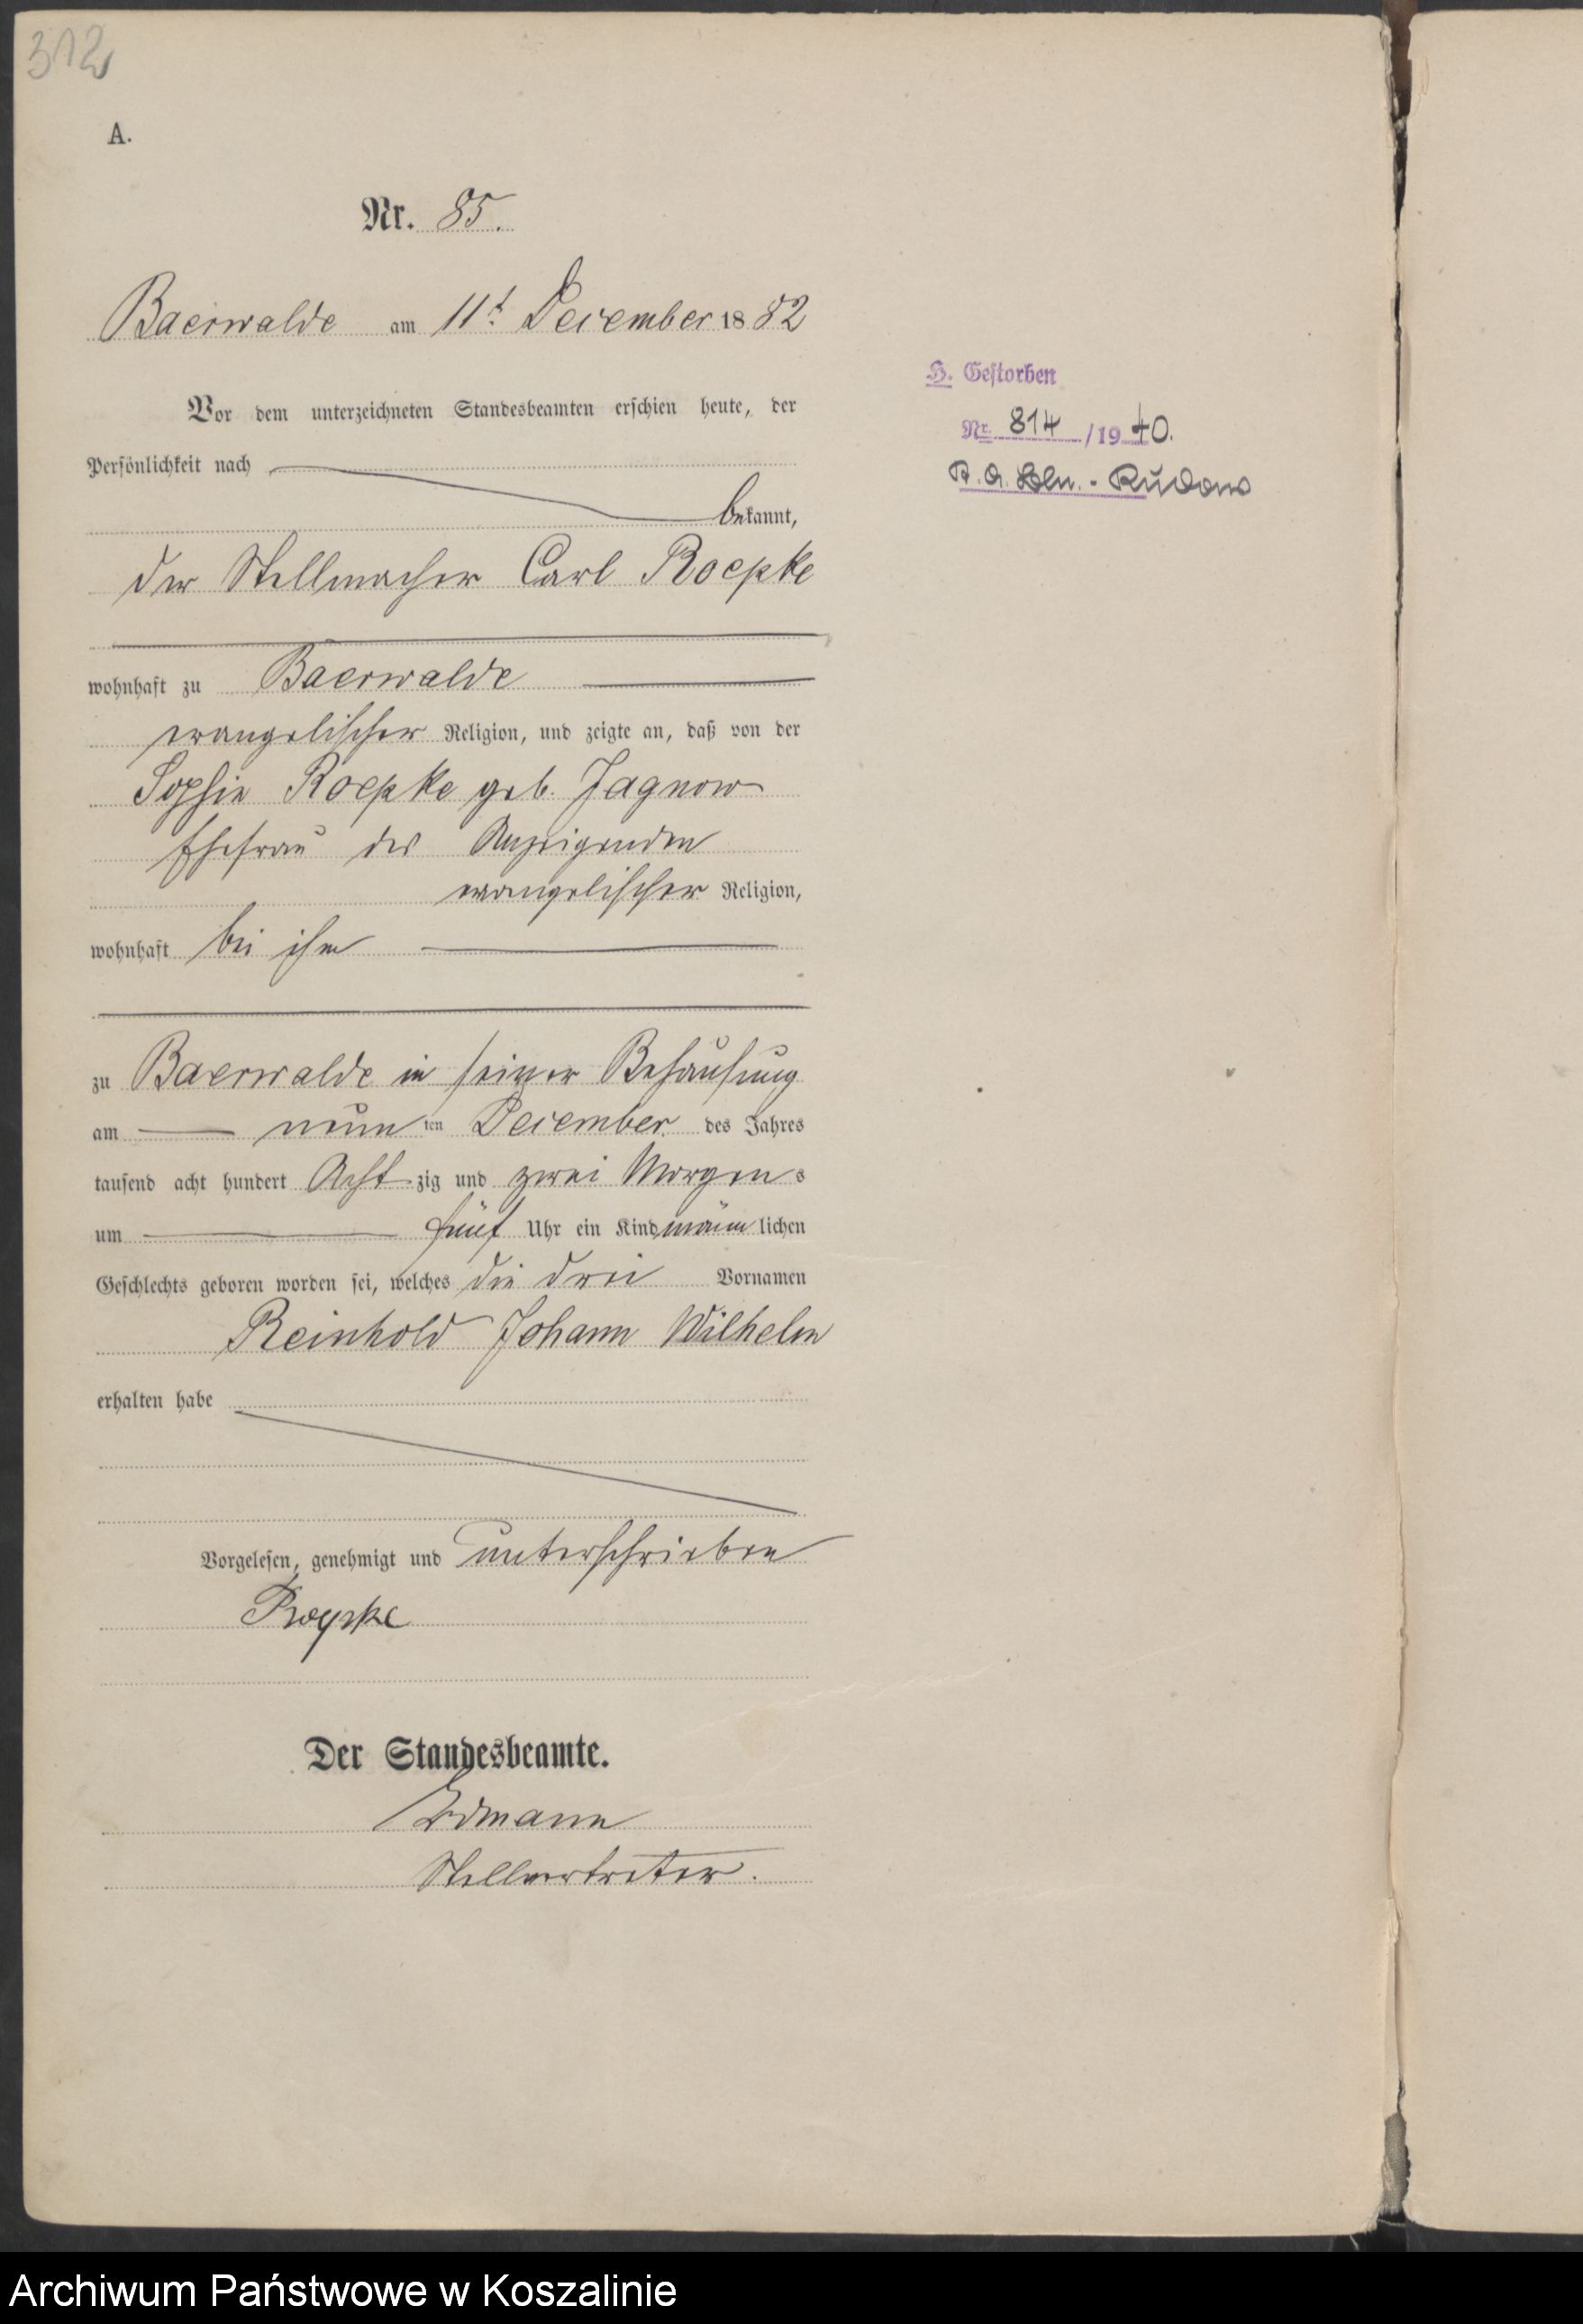 312
A.
Nr. 85.
Baerwalde am 11t December 1882
Vor dem unterzeichneten Standesbeamten erschien heute, der
Persönlichkeit nach
bekannt,
der Stellmacher Carl Roepke
wohnhaft zu Baerwalde
evangelischer Religion, und zeigte an, daß von der
Sophie Roepke geb. Jagnow
Ehefrau des Anzeigenden
evangelischer Religion,
wohnhaft bei ihm
zu Baerwalde in seiner Behausung
am neunten December des Jahres
tausend acht hundert Achtzig und zwei Morgens
um fünf Uhr ein Kind männlichen
Geschlechts geboren worden sei, welches die drei Vornamen
Reinhold Johann Wilhelm
erhalten habe
Vorgelesen, genehmigt und unterschrieben
Roepke
Der Standesbeamte.
Erdmann
Stellvertreter.
H. Gestorben
Nr. 814/1940.
Bln.-Rudow
Archiwum Państwowe w Koszalinie